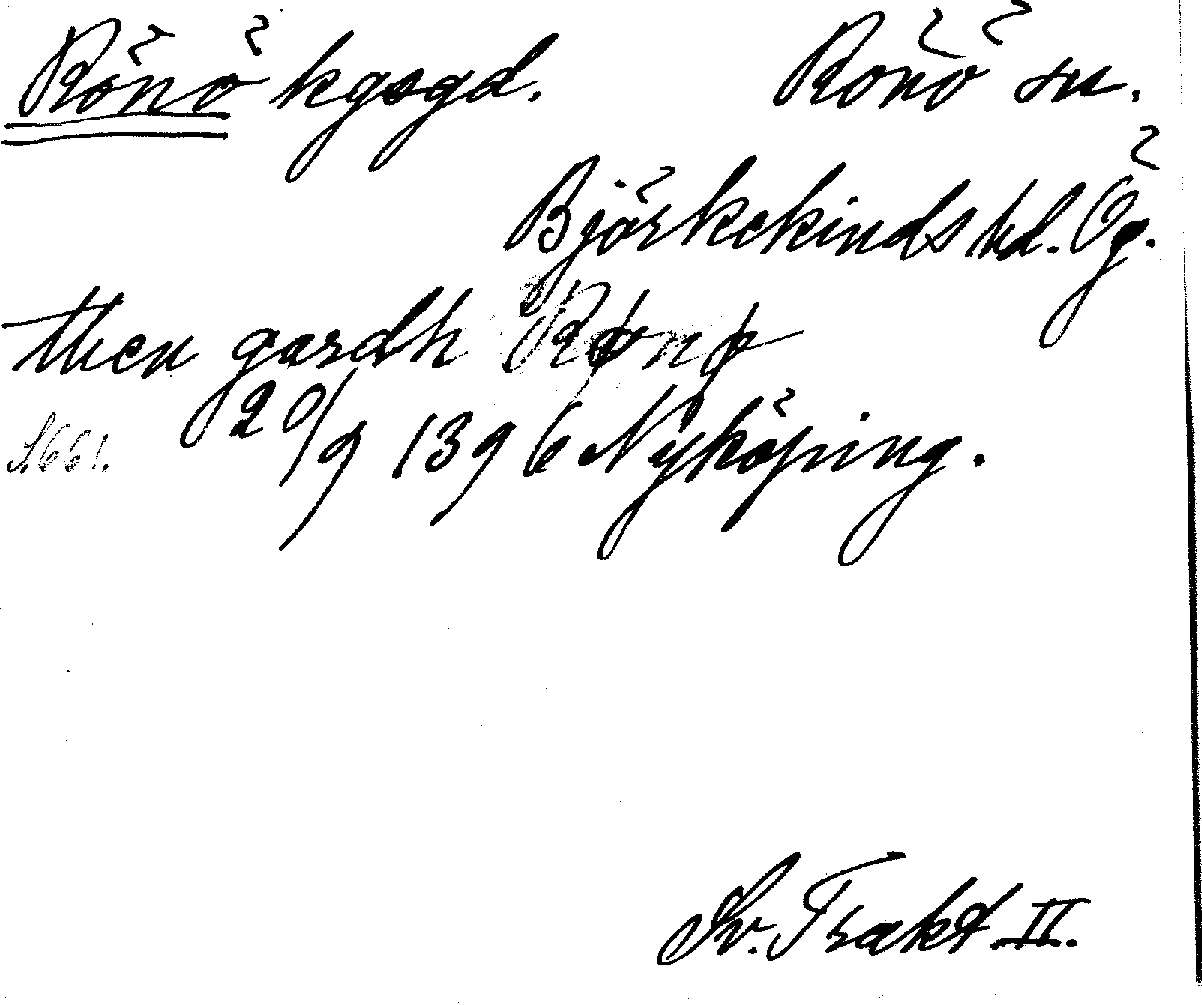 Rönö kgsgd. Rönö sn.
Björkekinds hd. Ög.
then gardh Rønø
S. 661. 20/9 1396 Nyköping.
Sv. Trakt. II.